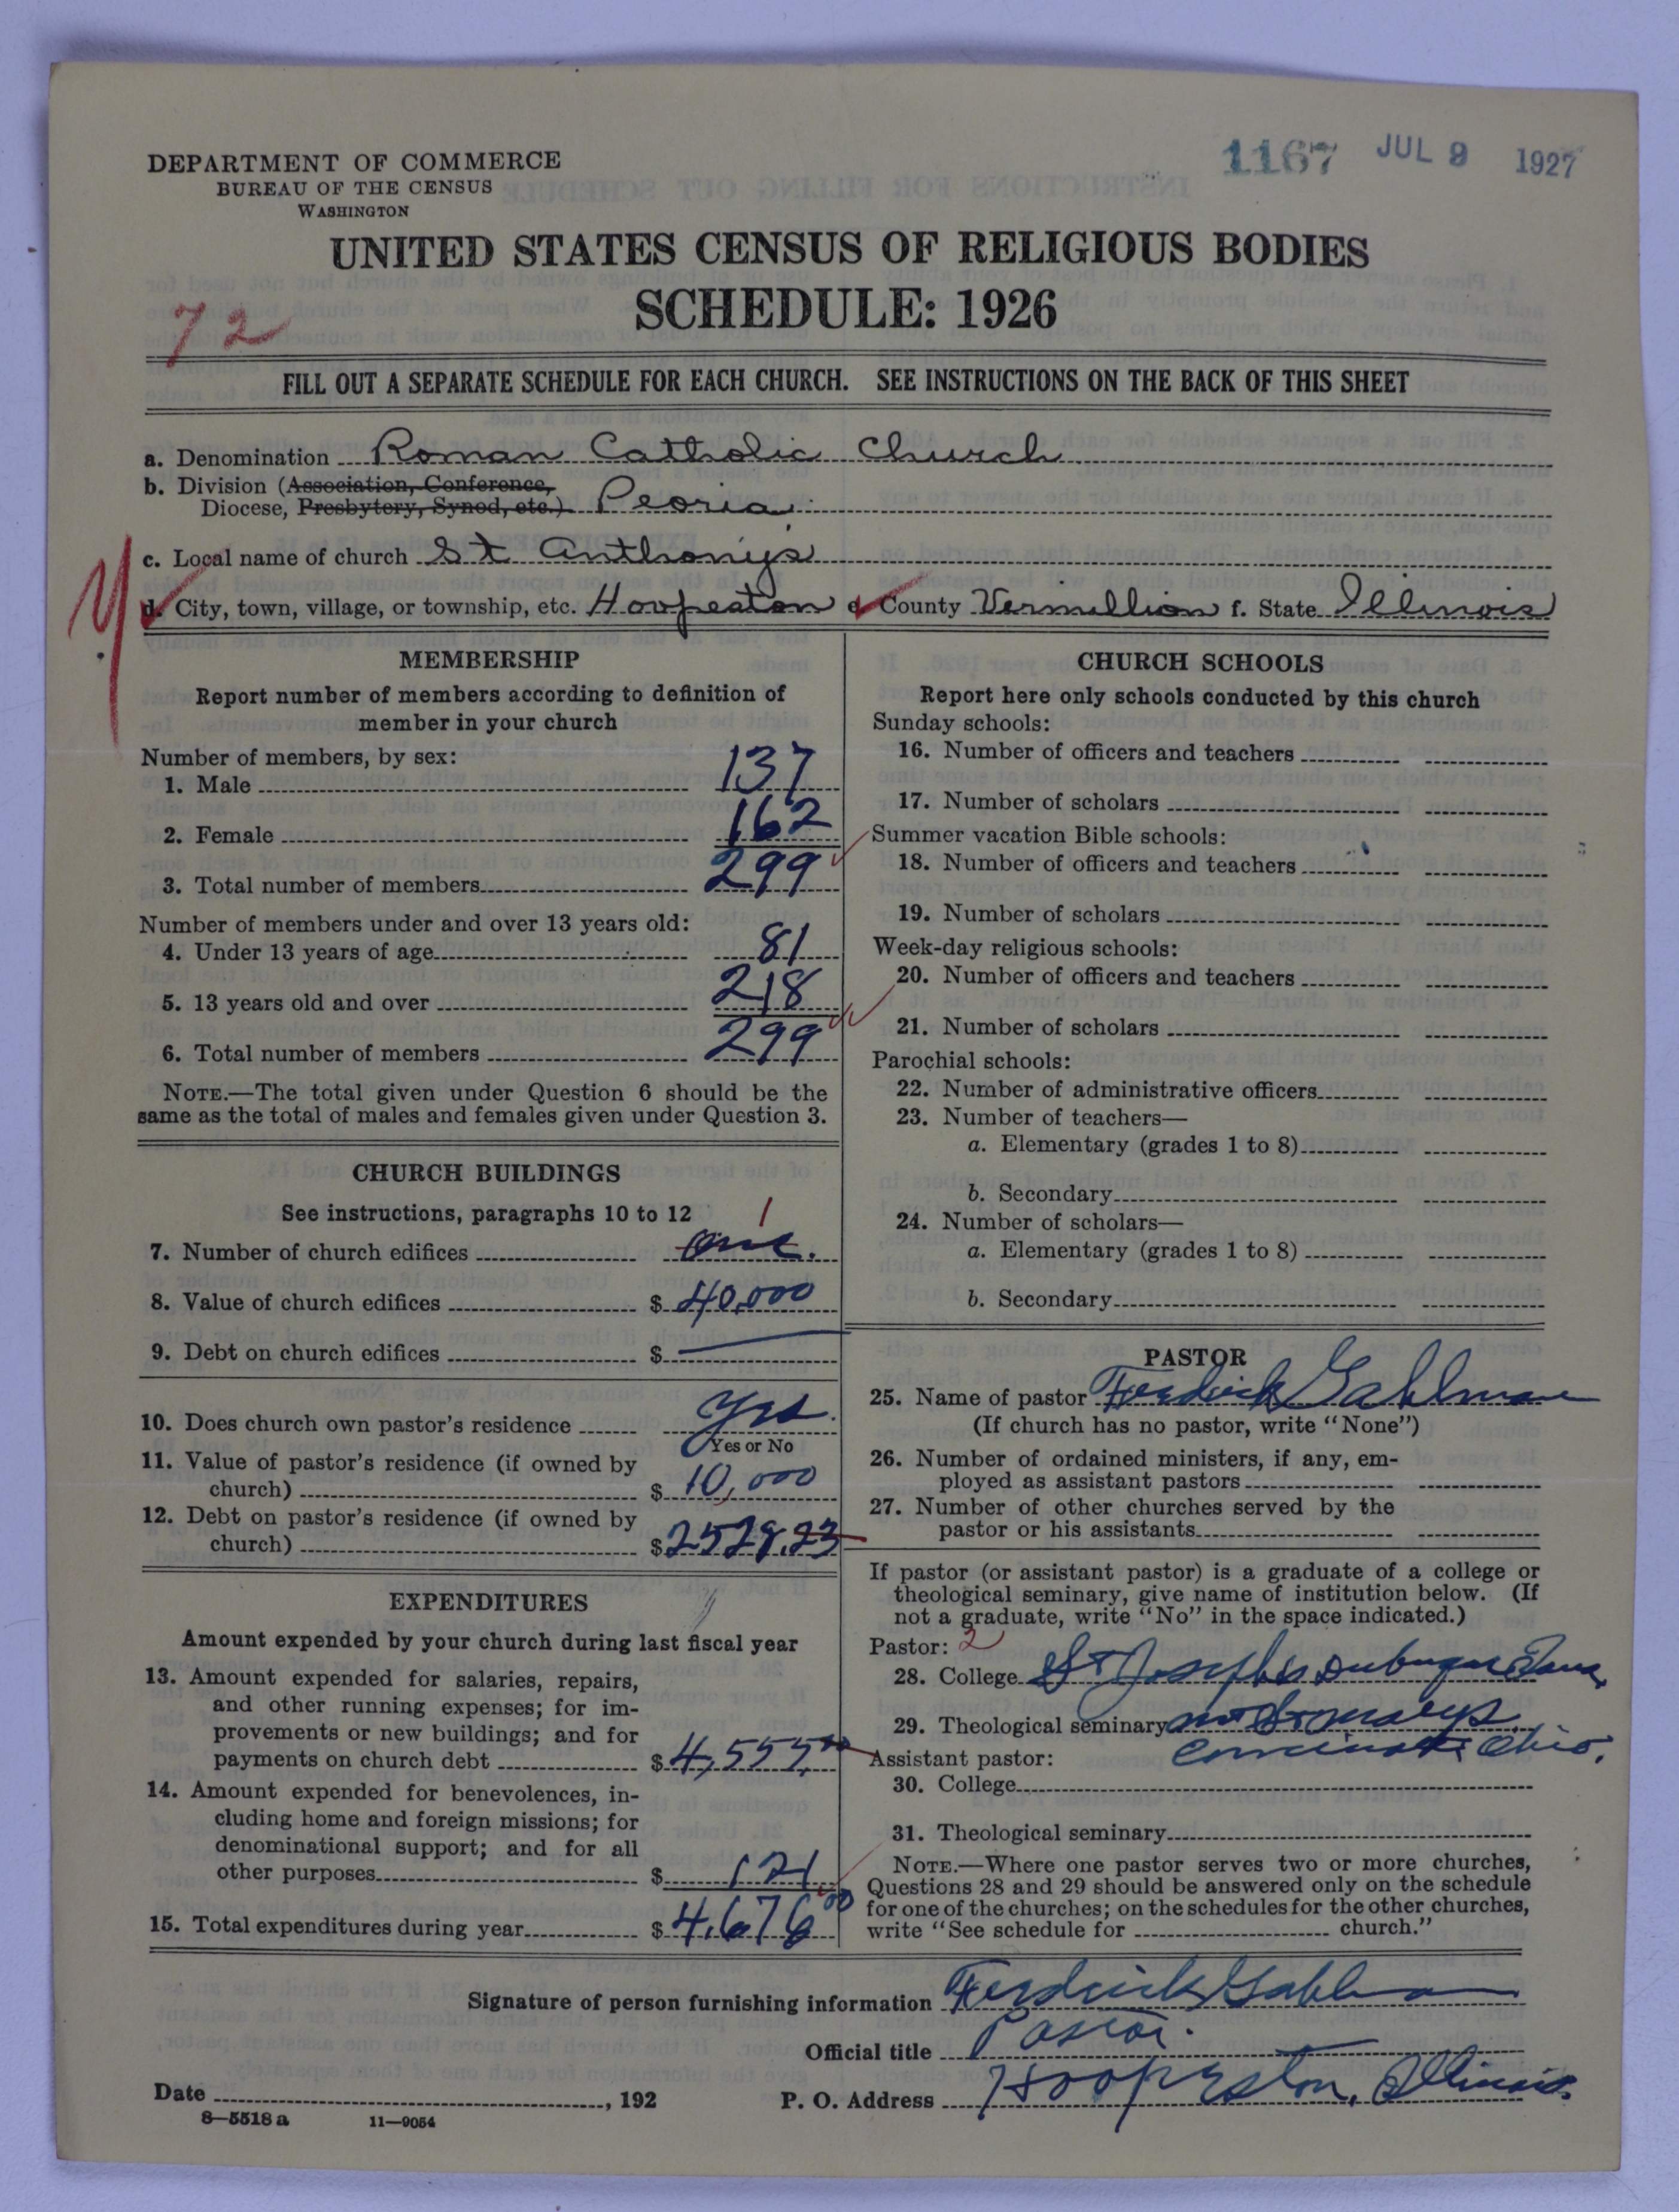 1167 JUL 9 1927
DEPARTMENT OF COMMERCE
BUREAU OF THE CENSUS
WASHINGTON
UNITED STATES CENSUS OF RELIGIOUS BODIES
SCHEDULE: 1926
72
FILL OUT A SEPARATE SCHEDULE FOR EACH CHURCH. SEE INSTRUCTIONS ON THE BACK OF THIS SHEET
a. Denomination Roman Catholic Church
b. Division (Association, Conference,
Diocese, Presbytery, Synod, etc.) Peoria
c. Local name of church St Anthony's
d. City, town, village, or township, etc. Hoopeston e. County Vermillion f. State Illinois
MEMBERSHIP
Report number of members according to definition of
member in your church
Number of members, by sex:
1. Male 137
2. Female 162
3. Total number of members 299
Number of members under and over 13 years old:
4. Under 13 years of age 81
5. 13 years old and over 218
6. Total number of members 299
NOTE.—The total given under Question 6 should be the
same as the total of males and females given under Question 3.
CHURCH BUILDINGS
See instructions, paragraphs 10 to 12
1
7. Number of church edifices one.
8. Value of church edifices $ 40,000
9. Debt on church edifices $ —
10. Does church own pastor's residence Yes.
Yes or No
11. Value of pastor's residence (if owned by
church) $ 10,000
12. Debt on pastor's residence (if owned by
church) $ 2528.23
EXPENDITURES
Amount expended by your church during last fiscal year
13. Amount expended for salaries, repairs,
and other running expenses; for im-
provements or new buildings; and for
payments on church debt $ 4,555.00
14. Amount expended for benevolences, in-
cluding home and foreign missions; for
denominational support; and for all
other purposes $ 121
15. Total expenditures during year $ 4,676 00
CHURCH SCHOOLS
Report here only schools conducted by this church
Sunday schools:
16. Number of officers and teachers
17. Number of scholars
Summer vacation Bible schools:
18. Number of officers and teachers
19. Number of scholars
Week-day religious schools:
20. Number of officers and teachers
21. Number of scholars
Parochial schools:
22. Number of administrative officers
23. Number of teachers—
a. Elementary (grades 1 to 8)
b. Secondary
24. Number of scholars—
a. Elementary (grades 1 to 8)
b. Secondary
PASTOR
25. Name of pastor Fredrick Gahlman
(If church has no pastor, write "None")
26. Number of ordained ministers, if any, em-
ployed as assistant pastors
27. Number of other churches served by the
pastor or his assistants
If pastor (or assistant pastor) is a graduate of a college or
theological seminary, give name of institution below. (If
not a graduate, write "No" in the space indicated.)
Pastor: 2
28. College St Josephs Dubuque Iowa
29. Theological seminary Mt St Marys
Cincinnati Ohio.
Assistant pastor:
30. College
31. Theological seminary
NOTE.—Where one pastor serves two or more churches,
Questions 28 and 29 should be answered only on the schedule
for one of the churches; on the schedules for the other churches,
write "See schedule for church."
Signature of person furnishing information Fredrick Gahlman
Official title Pastor.
Date , 192 P. O. Address Hoopeston, Illinois.
8—5518 a 11—9054